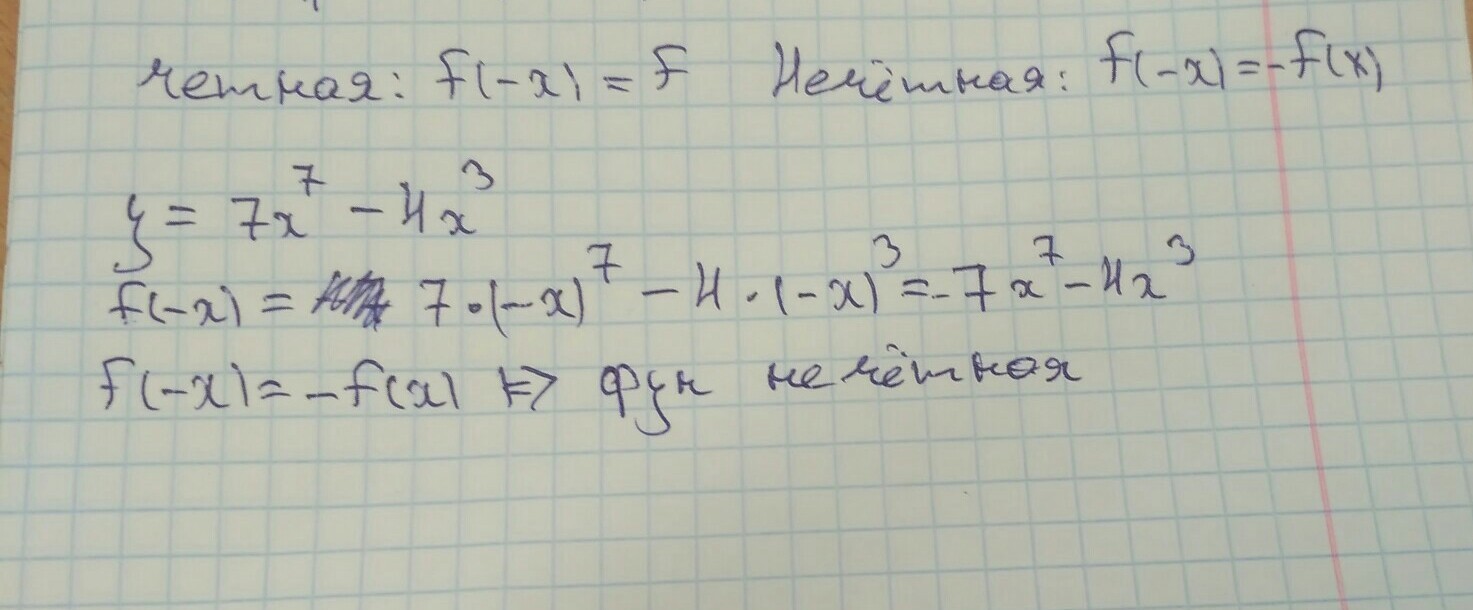 четная: f(-x) = f Нечётная: f(-x)=-f(x)
y = 7x⁷ - 4x³
f(-x) = 7·(-x)⁷ - 4·(-x)³ =-7x⁷-4x³
f(-x)=-f(x) => фун нечётная